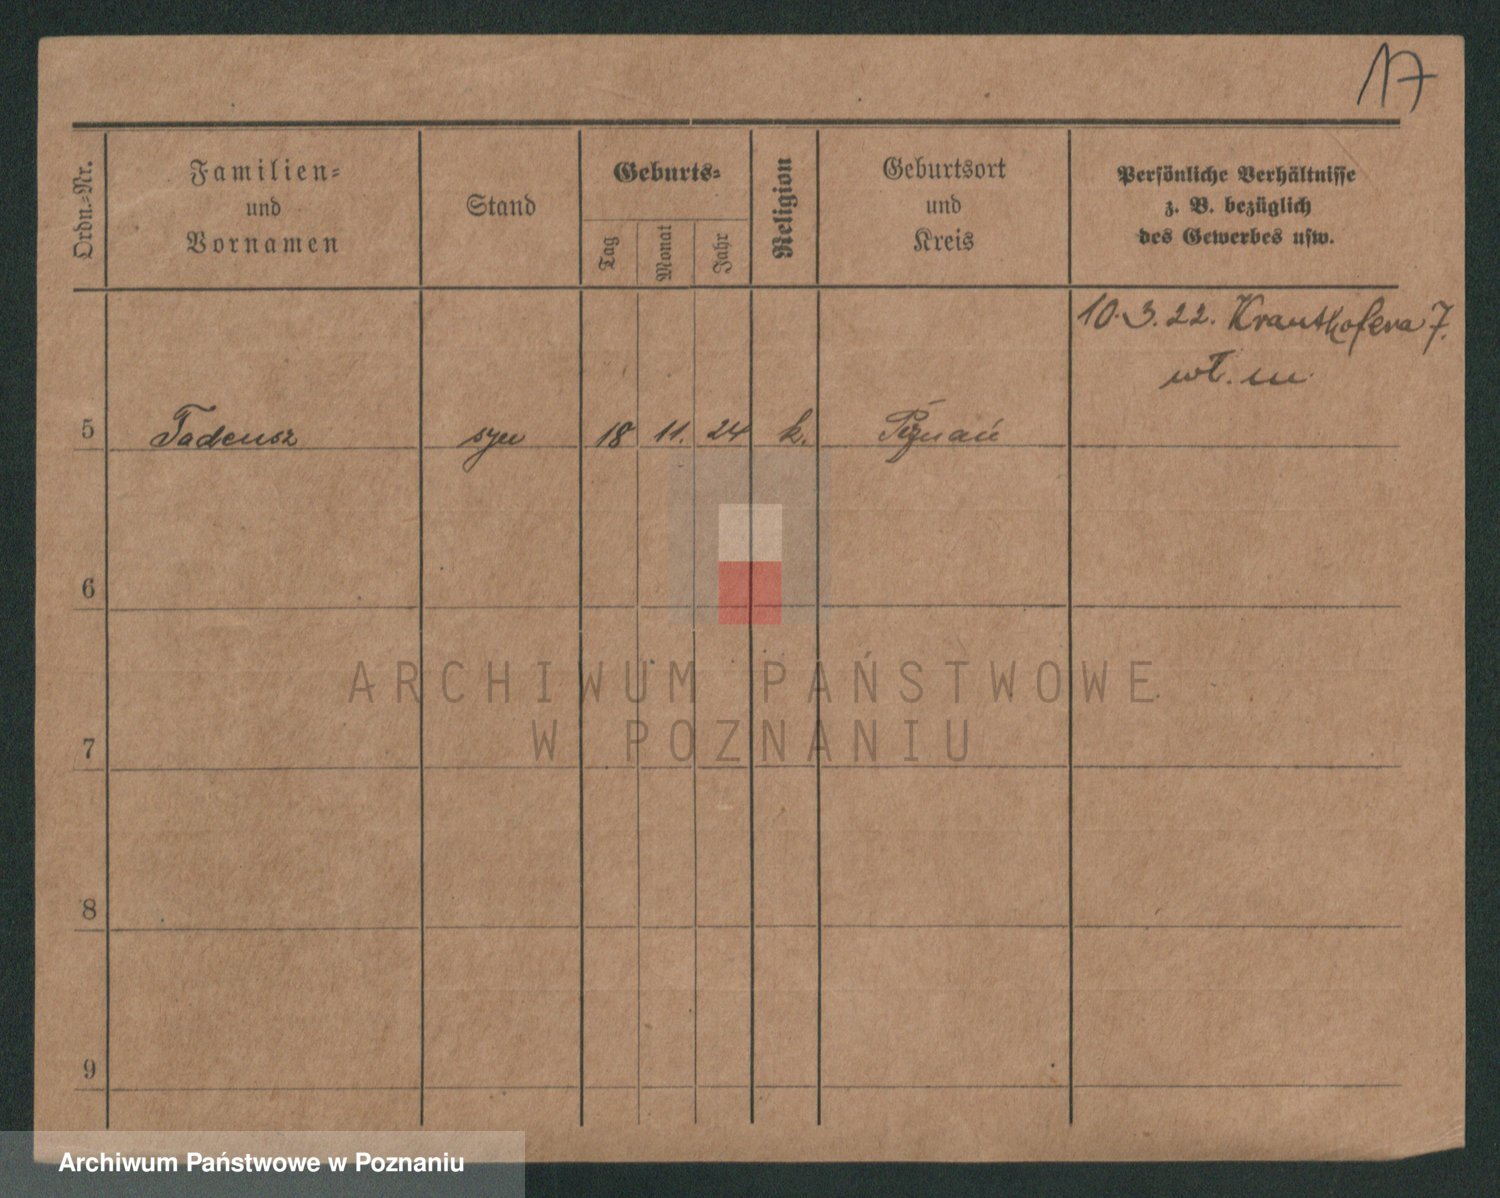 17
Ordn.-Nr.
Familien-
und
Vornamen
Stand
Geburts-
Tag
Monat
Jahr
Religion
Geburtsort
und
Kreis
Persönliche Verhältnisse
z. B. bezüglich
des Gewerbes usw.
10.3.22. Krauthofera 7.
wł. m.
5 Tadeusz syn 18 11. 24 k. Poznań
6
7
8
9
ARCHIWUM PAŃSTWOWE
W POZNANIU
Archiwum Państwowe w Poznaniu